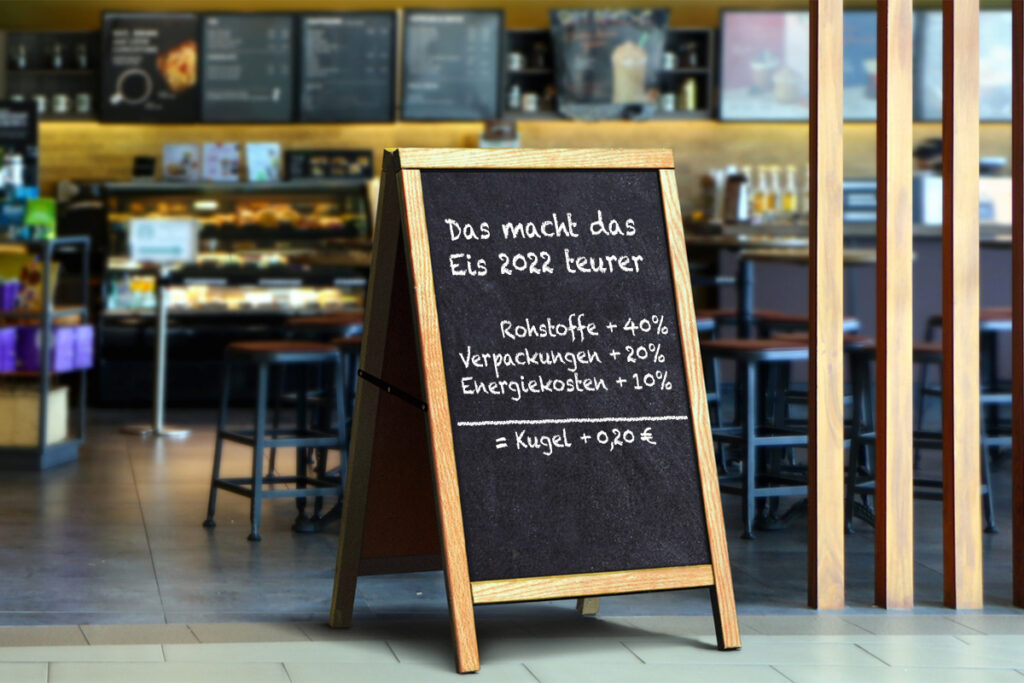 Das macht das
Eis 2022 teurer
Rohstoffe + 40%
Verpackungen + 20%
Energiekosten + 10%
= Kugel + 0,20 €